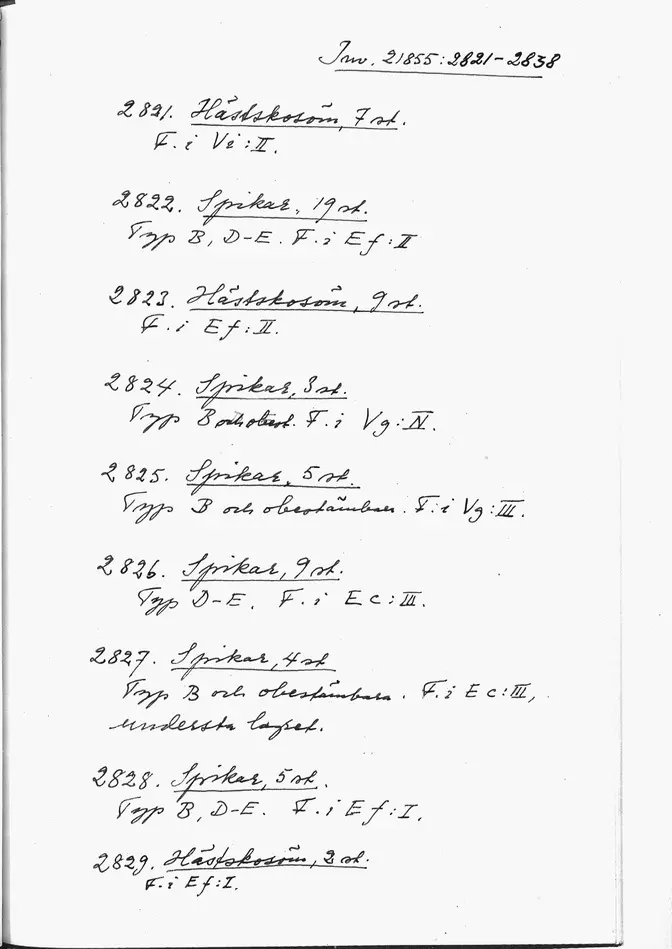 Inv. 21855:2821-2838
2821. Hästskosöm, 7 st.
F. i Vi:II.
2822. Spikar, 19 st.
Typ B, D-E. F. i Ef:II
2823. Hästskosöm, 9 st.
F. i Ef:II.
2824. Spikar, 3 st.
Typ B och obest. F. i Vg:IV.
2825. Spikar, 5 st.
Typ B och obestämbar. F. i Vg:III.
2826. Spikar, 9 st.
Typ D-E. F. i Ec:III.
2827. Spikar, 4 st
Typ B och obestämbara. F. i Ec:III,
understa lagret.
2828. Spikar, 5 st.
Typ B, D-E. F. i Ef:I.
2829. Hästskosöm, 2 st.
F. i Ef:I.